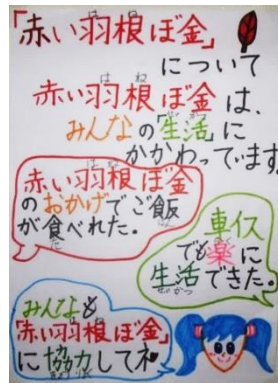 「赤い羽根ぼ金」
について
赤い羽根ぼ金は、
みんなの「生活」に
かかわっています
赤い羽根ぼ金
のおかげでご飯
が食べれた。
車イス
でも楽に
生活できた。
みんなも
「赤い羽根ぼ金」
に協力してネ